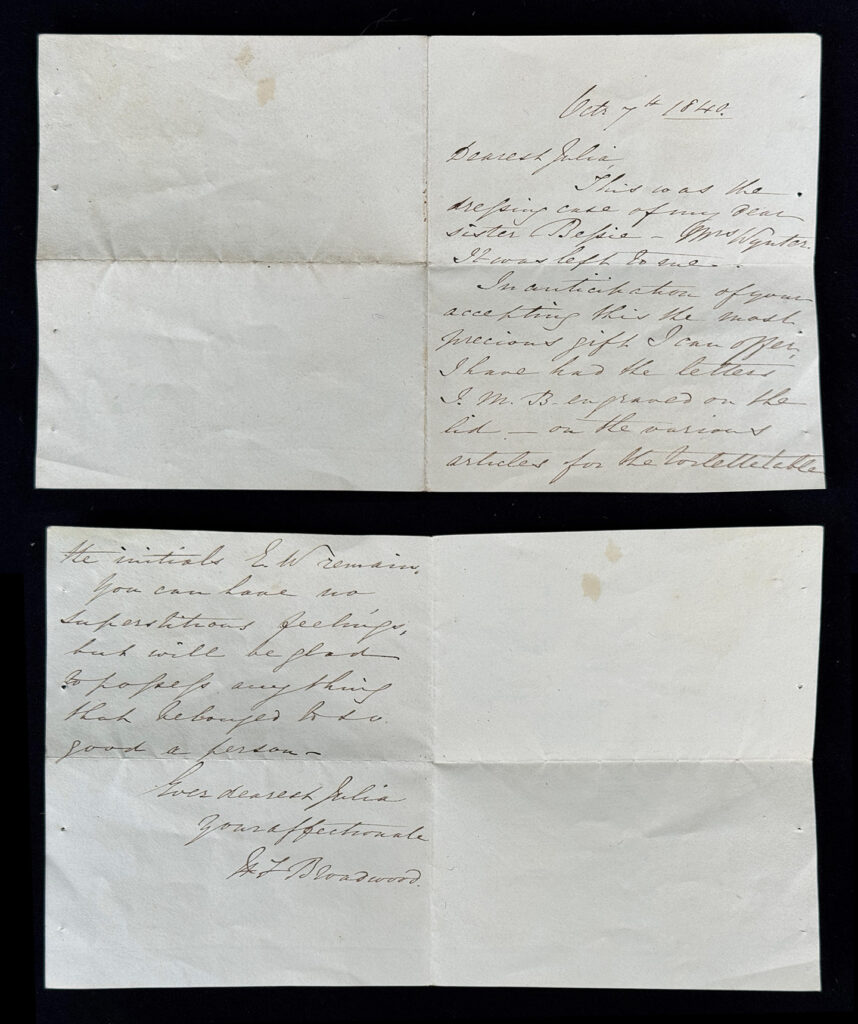 Octr 7th 1840.
Dearest Julia,
This was the
dressing case of my dear
sister Bessie – Mrs Wynter.
It was left to me.
In anticipation of your
accepting this the most
precious gift I can offer,
I have had the letters
J. M. B. engraved on the
lid – on the various
articles for the toilette table
the initials E. W remain.
You can have no
superstitious feelings,
but will be glad
to possess anything
that belonged to so
good a person –
Ever dearest Julia
your affectionate
H F Broadwood.